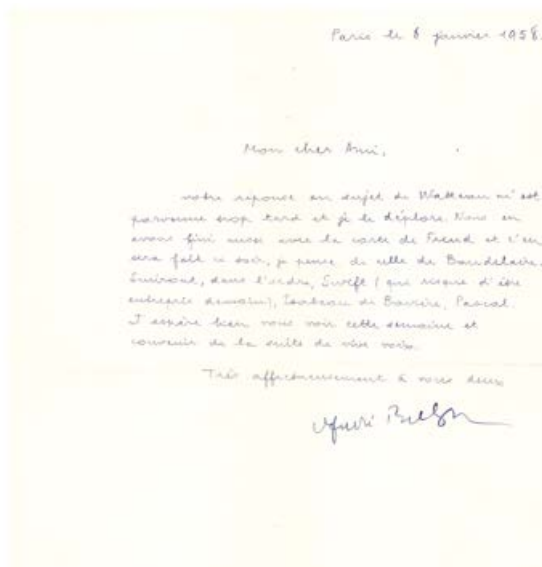 Paris le 8 janvier 1958.
Mon cher Ami,
votre réponse au sujet de Watteau m'est
parvenue trop tard et je le déplore. Nous en
avons fini aussi avec la carte de Freud et c'en
sera fait ce soir, je pense de celle de Baudelaire.
Suivront, dans l'ordre, Swift (qui risque d'être
entreprise demain), de Pascal.
J'espère bien vous voir cette semaine et
convenir de la suite de vive voix.
Très affectueusement à vous deux